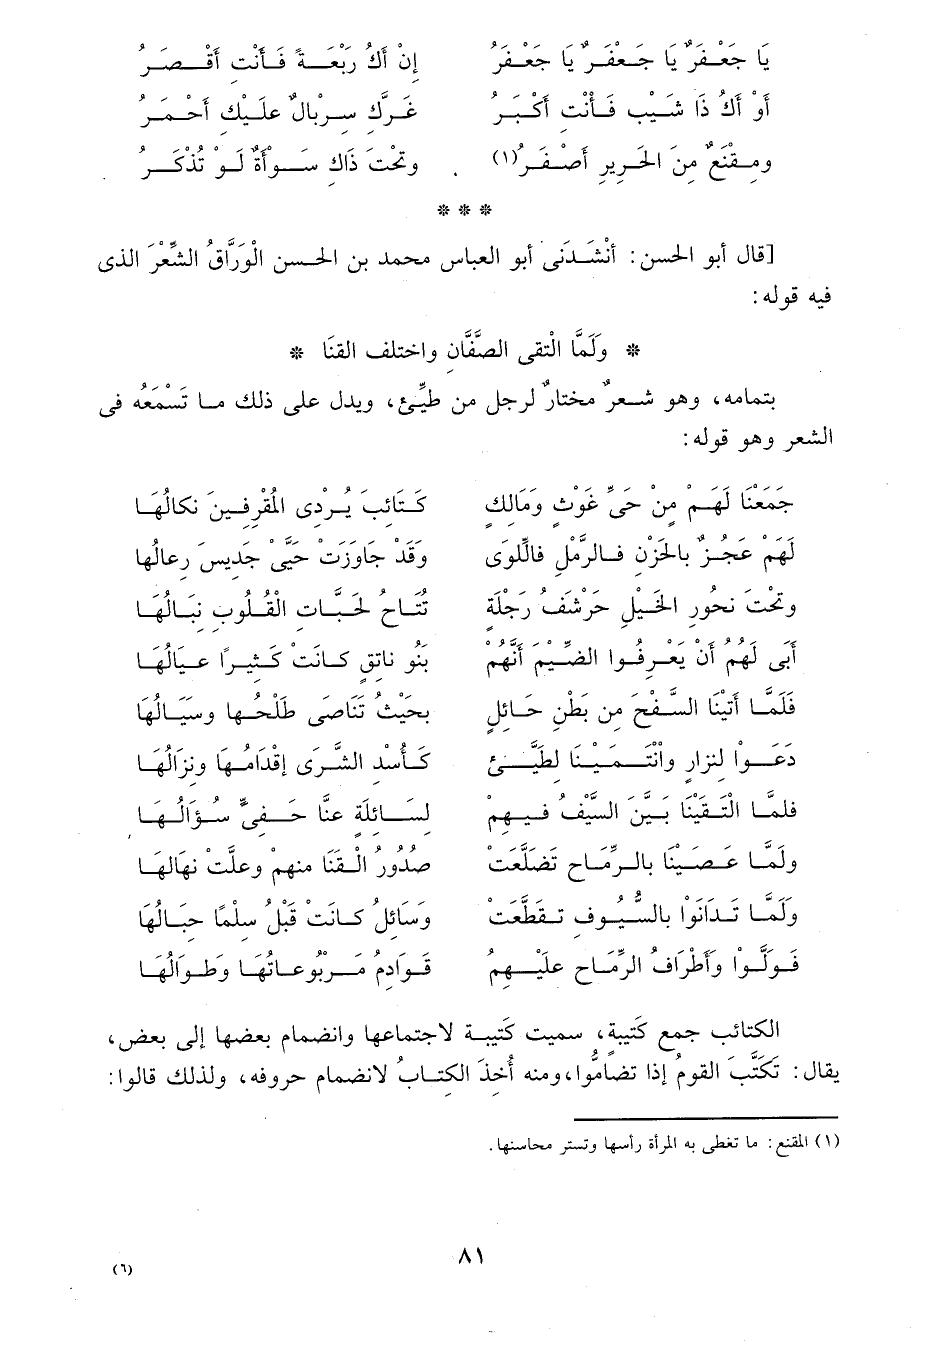 يَا جَعْفَرٌ يَا جَعْفَرٌ يَا جَعْفَرُ إِنْ أَكُ رَبْعَةً فَأَنْتِ أَقْصَرُ
أَوْ أَكُ ذَا شَيْبٍ فَأَنْتِ أَكْبَرُ غَرَّكِ سِرْبَالٌ عَلَيْكِ أَحْمَرُ
ومِقْنَعٌ مِنَ الحَرِيرِ أَصْفَرُ(١) وتَحْتَ ذَاكَ سَوْأَةٌ لَوْ تُذْكَرُ
* * *
[قال أبو الحسن: أَنْشَدَنى أبو العباس محمد بن الحسن الْوَرَّاقُ الشِّعْرَ الذى
فيه قوله:
* وَلَمَّا الْتَقى الصَّفَّانِ واختلف القنَا *
بتمامه، وهو شعرٌ مختارٌ لرجل من طيِّئ، ويدل على ذلك ما تَسْمَعُه فى
الشعر وهو قوله:
جَمَعْنَا لَهُمْ مِنْ حَىِّ غَوْثٍ وَمَالِكٍ كَتَائِبَ يُرْدِى المُقْرِفِينَ نَكَالُهَا
لَهُمْ عَجُزٌ بِالحَزْنِ فَالرَّمْلِ فَاللِّوَى وَقَدْ جَاوَزَتْ حَيَّىْ جَدِيسَ رِعَالُهَا
وتَحْتَ نُحُورِ الخَيْلِ حَرْشَفُ رَجْلَةٍ تُتَاحُ لِحَبَّاتِ القُلُوبِ نِبَالُهَا
أَبَى لَهُمْ أَنْ يَعْرِفُوا الضَّيْمَ أَنَّهُمْ بَنُو نَاتِقٍ كَانَتْ كَثِيرًا عِيَالُهَا
فَلَمَّا أَتَيْنَا السَّفْحَ مِنْ بَطْنِ حَائِلٍ بِحَيْثُ تَنَاصَى طَلْحُهَا وسَيَالُهَا
دَعَوْا لِنِزَارٍ وَانْتَمَيْنَا لِطَيِّئٍ كَأُسْدِ الشَّرَى إِقْدَامُهَا ونِزَالُهَا
فلمَّا الْتَقَيْنَا بَيَّنَ السَّيْفُ فِيهِمْ لِسَائِلَةٍ عَنَّا حَفِىٍّ سُؤَالُهَا
ولَمَّا عَصَيْنَا بِالرِّمَاحِ تَضَلَّعَتْ صُدُورُ الْقَنَا مِنهُمْ وعَلَّتْ نِهَالُهَا
ولَمَّا تَدَانَوْا بِالسُّيُوفِ تَقَطَّعَتْ وَسَائِلُ كَانَتْ قَبْلُ سِلْمًا حِبَالُهَا
فَوَلَّوْا وَأَطْرَافُ الرِّمَاحِ عَلَيْهِمُ قَوَادِمُ مَرْبُوعَاتُهَا وَطِوَالُهَا
الكتائب جمع كَتِيبَة، سميت كَتِيبَة لاجتماعها وانضمام بعضها إلى بعض،
يقال: تَكَتَّبَ القومُ إذا تضامُّوا، ومنه أُخِذَ الكتابُ لانضمام حروفه، ولذلك قالوا:
(١) المقنع: ما تغطى به المرأة رأسها وتستر محاسنها.
٨١
(٦)